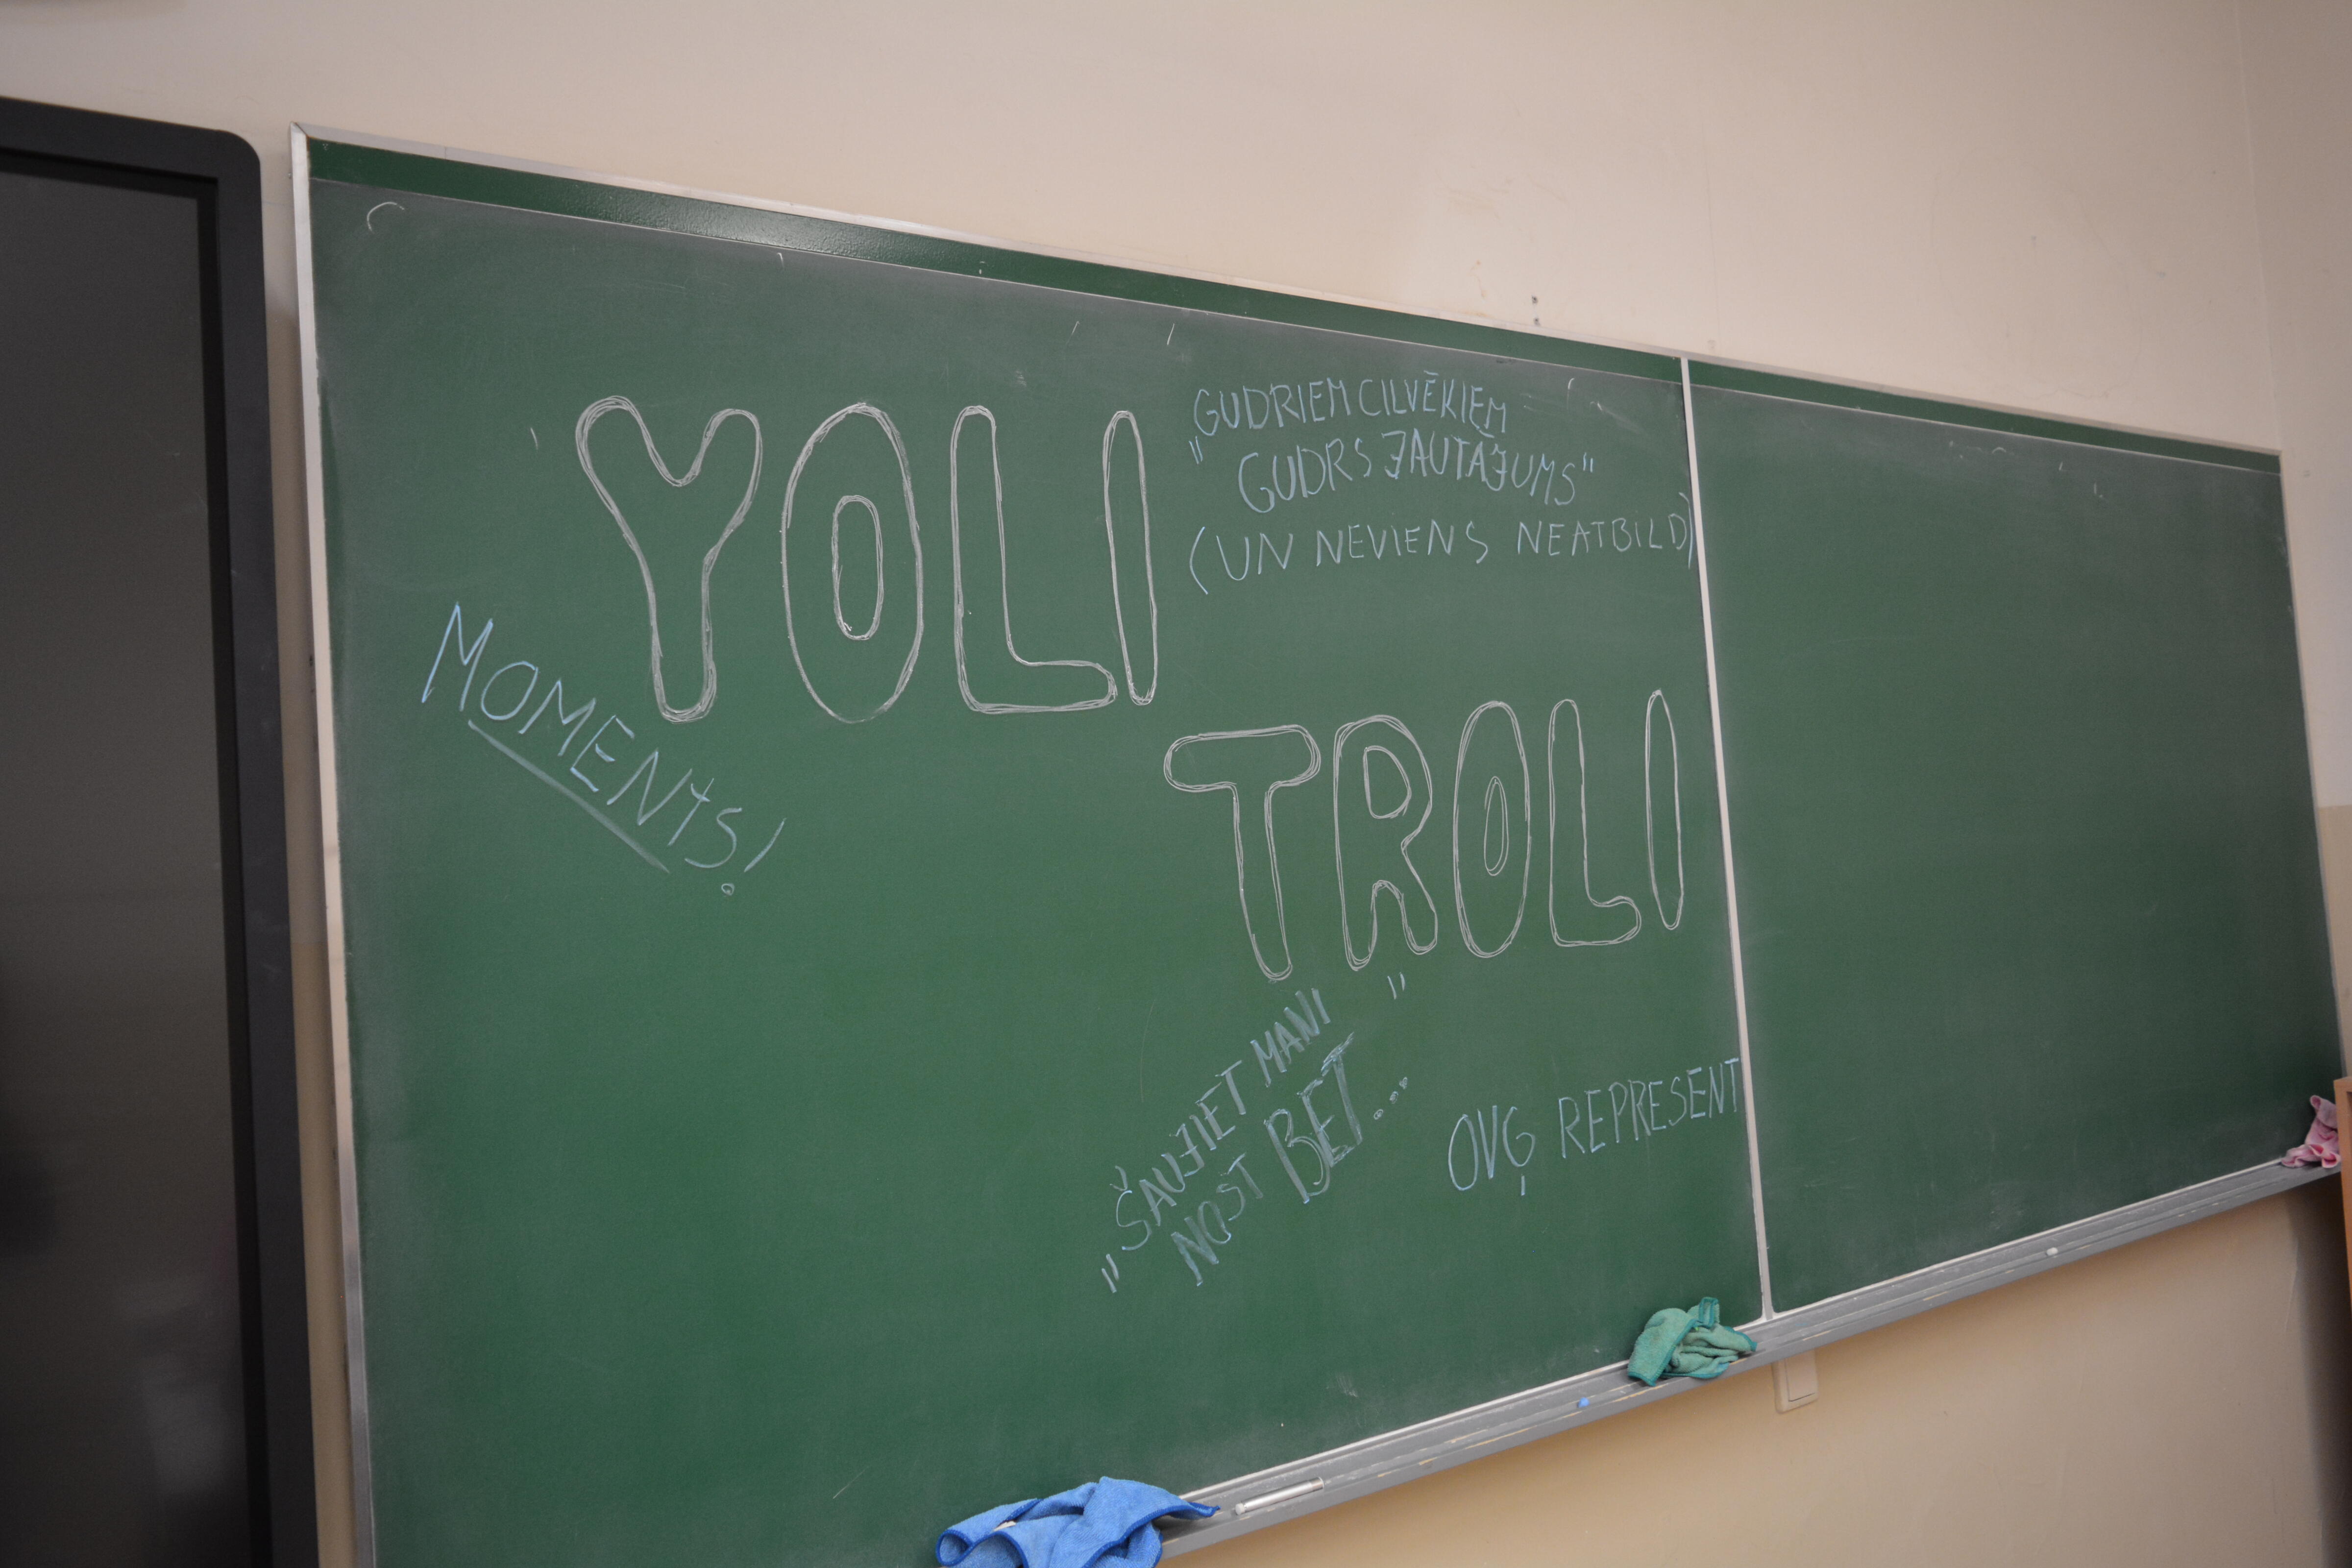 YOLI
GUDRIEM CILVĒKIEM
"GUDRS JAUTĀJUMS"
(UN NEVIENS NEATBILD)
MOMENTS!
TROLI
"ŠAUJIET MANI
NOST BET..."
OVĢ REPRESENT